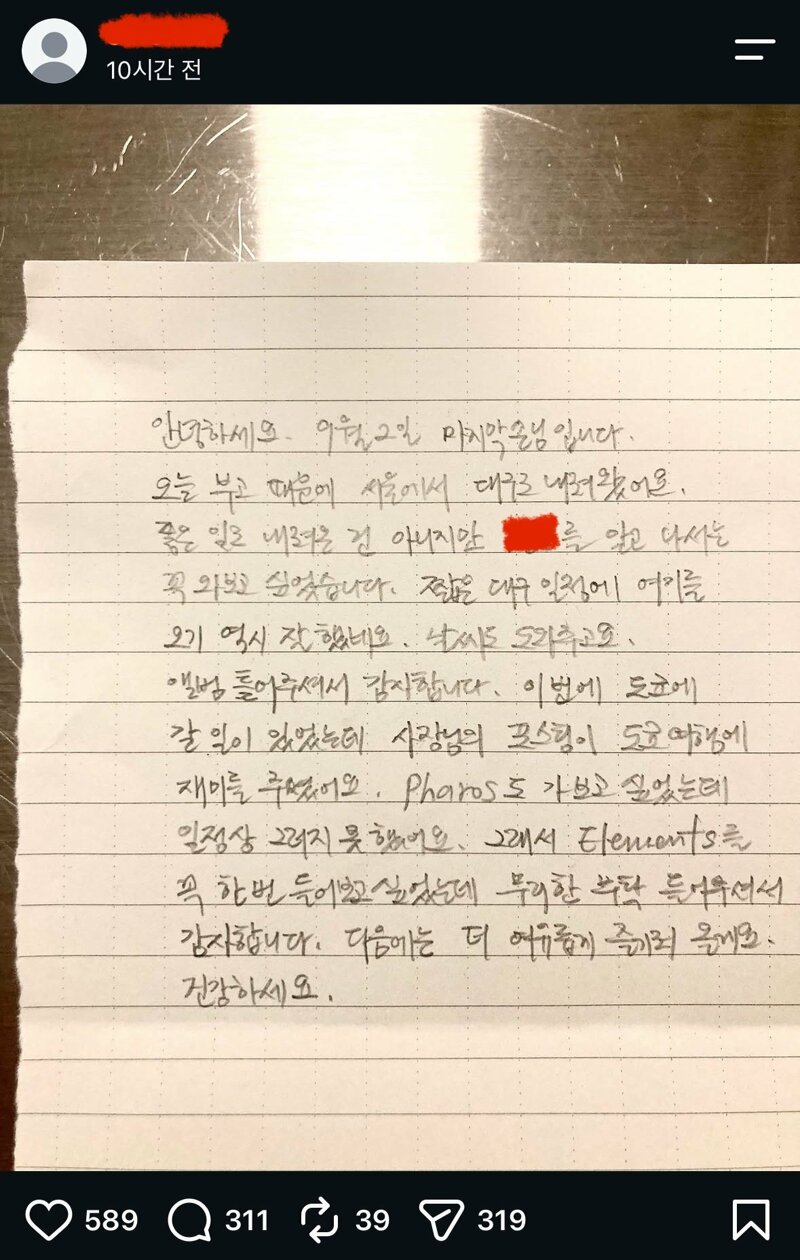 10시간 전
안녕하세요. 9월 2일 마지막 손님입니다.
오늘 부고 때문에 서울에서 대구로 내려왔어요.
좋은 일로 내려온 건 아니지만 를 알고 나서는
꼭 와보고 싶었습니다. 짧은 대구 일정에 여기를
오기 역시 잘했네요. 날씨도 도와주고요.
앨범 틀어주셔서 감사합니다. 이번에 도쿄에
갈 일이 있었는데 사장님의 포스팅이 도쿄여행에
재미를 주셨어요. Pharos도 가보고 싶었는데
일정상 그러지 못했어요. 그래서 Elements를
꼭 한번 들어보고 싶었는데 무리한 부탁 들어주셔서
감사합니다. 다음에는 더 여유롭게 즐기러 올게요.
건강하세요.
589 311 39 319